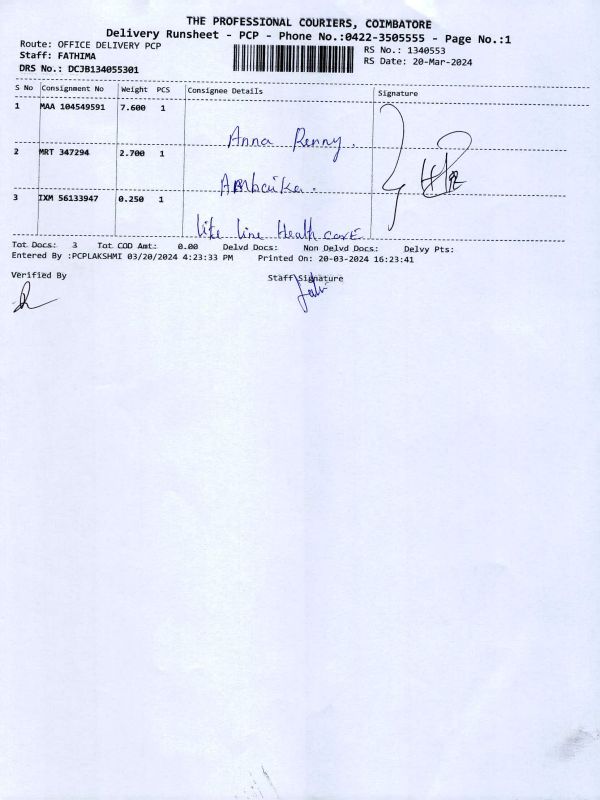 THE PROFESSIONAL COURIERS, COIMBATORE
Delivery Runsheet - PCP - Phone No.:0422-3505555 - Page No.:1
Route: OFFICE DELIVERY PCP
Staff: FATHIMA
DRS No.: DCJB134055301
RS No.: 1340553
RS Date: 20-Mar-2024
S No Consignment No Weight PCS Consignee Details Signature
1 MAA 104549591 7.600 1
Anna Renny.
2 MRT 347294 2.700 1
Ambaika.
3 IXM 56133947 0.250 1
life line Health care
Tot Docs: 3 Tot COD Amt: 0.00 Delvd Docs: Non Delvd Docs: Delvy Pts:
Entered By :PCPLAKSHMI 03/20/2024 4:23:33 PM Printed On: 20-03-2024 16:23:41
Verified By Staff Signature